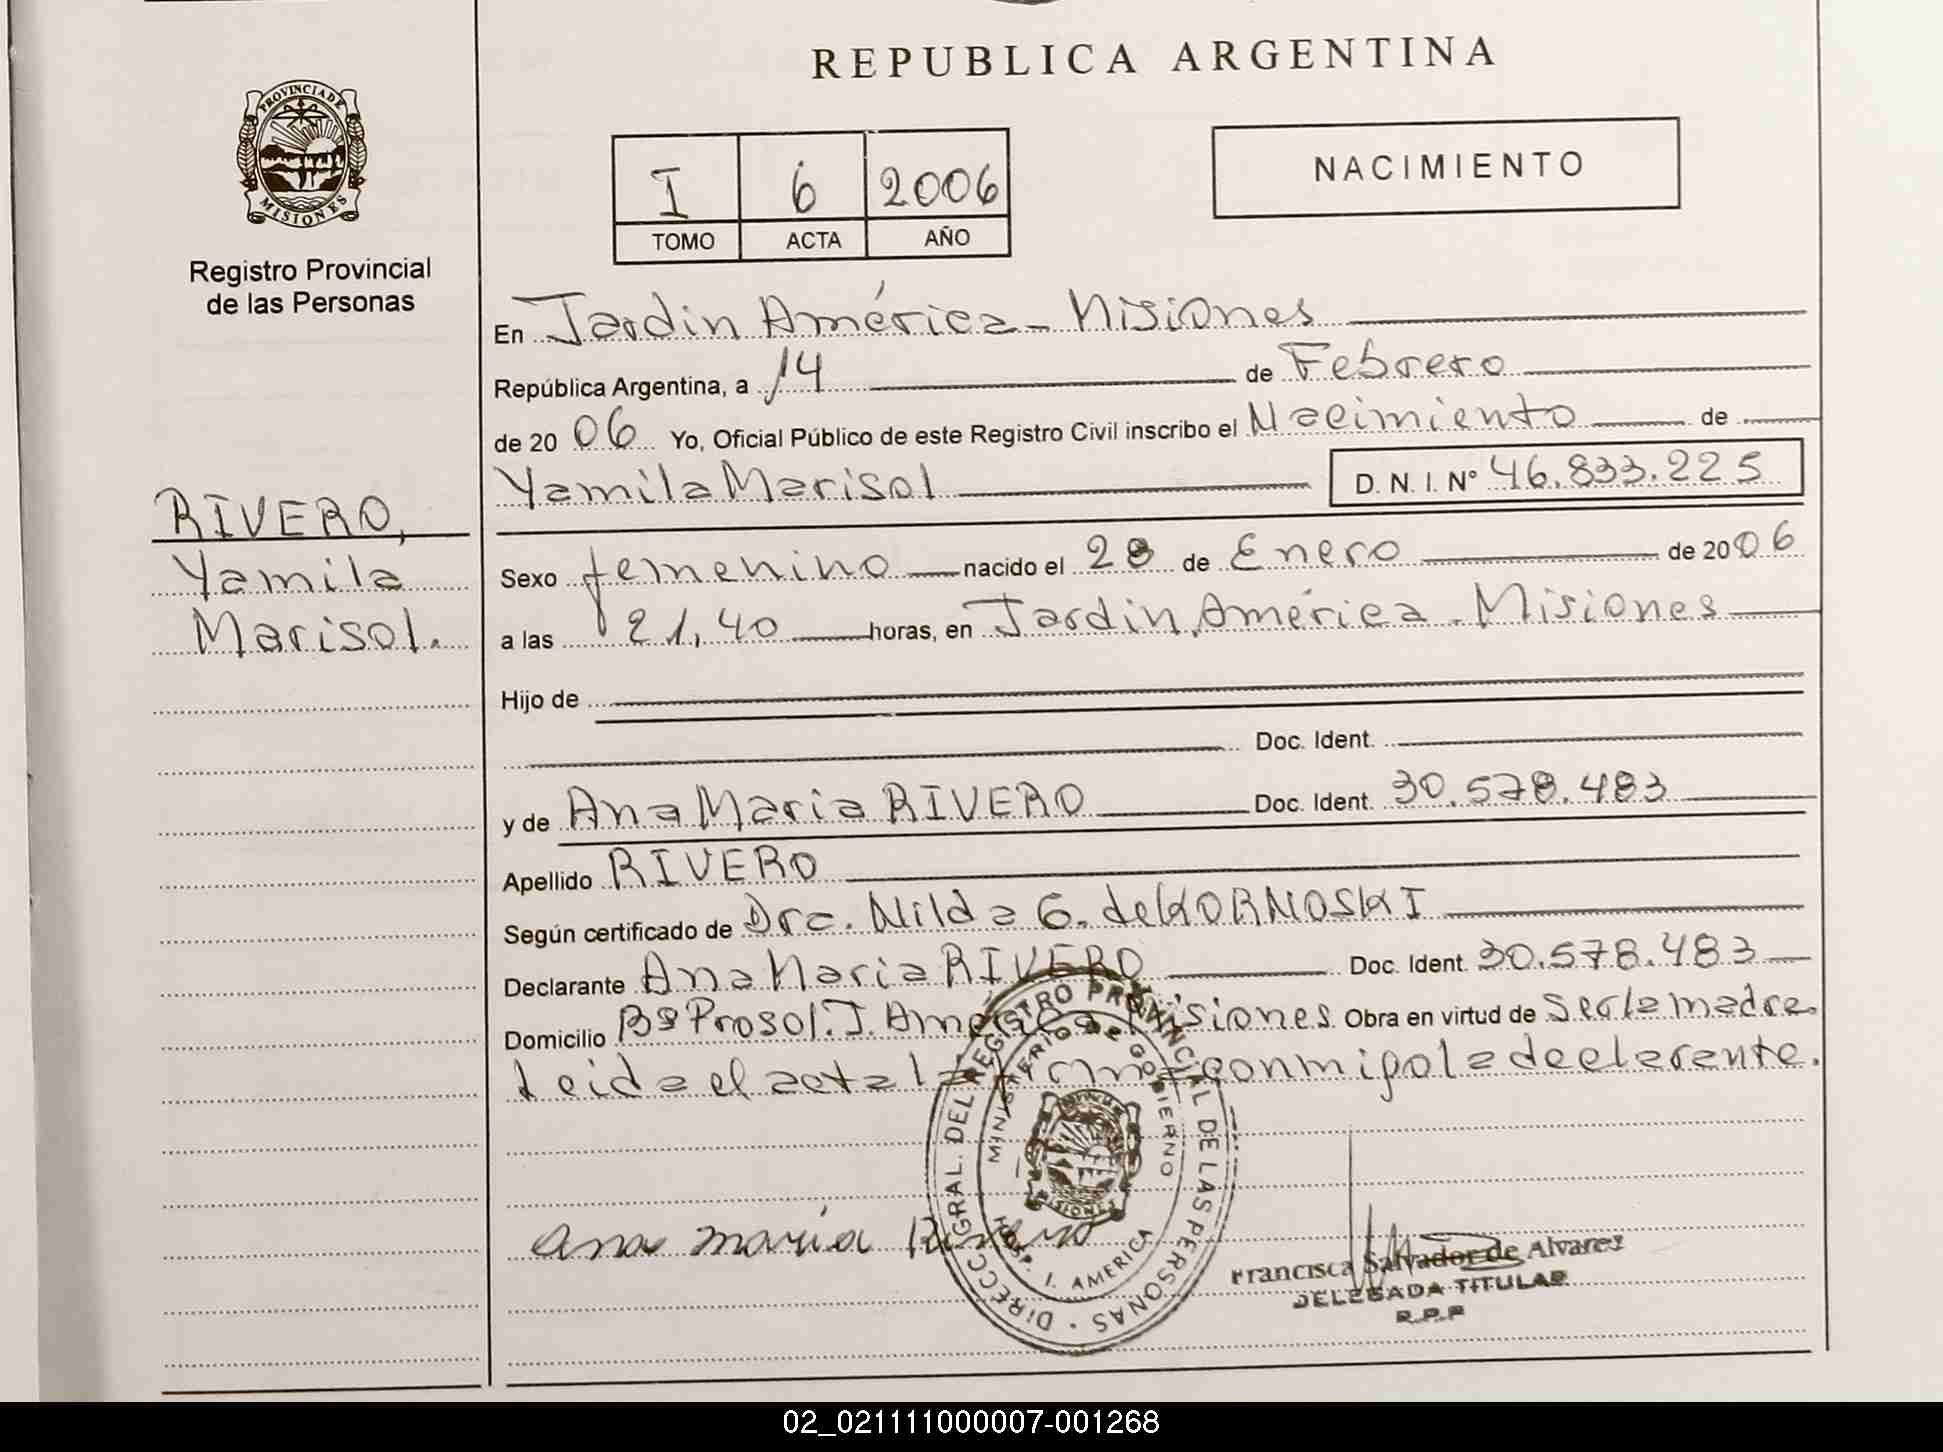 REPUBLICA ARGENTINA
PROVINCIA DE
MISIONES
Registro Provincial
de las Personas
I 6 2006
TOMO ACTA AÑO
NACIMIENTO
RIVERO,
Yamila
Marisol.
En Jardin América - Misiones
República Argentina, a 14 de Febrero
de 2006 Yo, Oficial Público de este Registro Civil inscribo el Nacimiento de
Yamila Marisol D. N. I. Nº 46.833.225
Sexo femenino nacido el 28 de Enero de 2006
a las 21,40 horas, en Jardin América - Misiones
Hijo de
Doc. Ident.
y de Ana Maria RIVERO Doc. Ident. 30.578.483
Apellido RIVERO
Según certificado de Dra. Nilda G. de KORNOSKI
Declarante Ana Maria RIVERO Doc. Ident. 30.578.483
Domicilio Bº Prosol. J. América Misiones Obra en virtud de ser la madre.
Leida el acta la firma conmigo la declarante.
DIRECC. GRAL. DEL REGISTRO PROVINCIAL DE LAS PERSONAS
MINISTERIO DE GOBIERNO
MISIONES
HOSP. J. AMERICA
Ana maría Rivero
Francisca Salvador de Alvarez
DELEGADA TITULAR
R.P.P
02_021111000007-001268